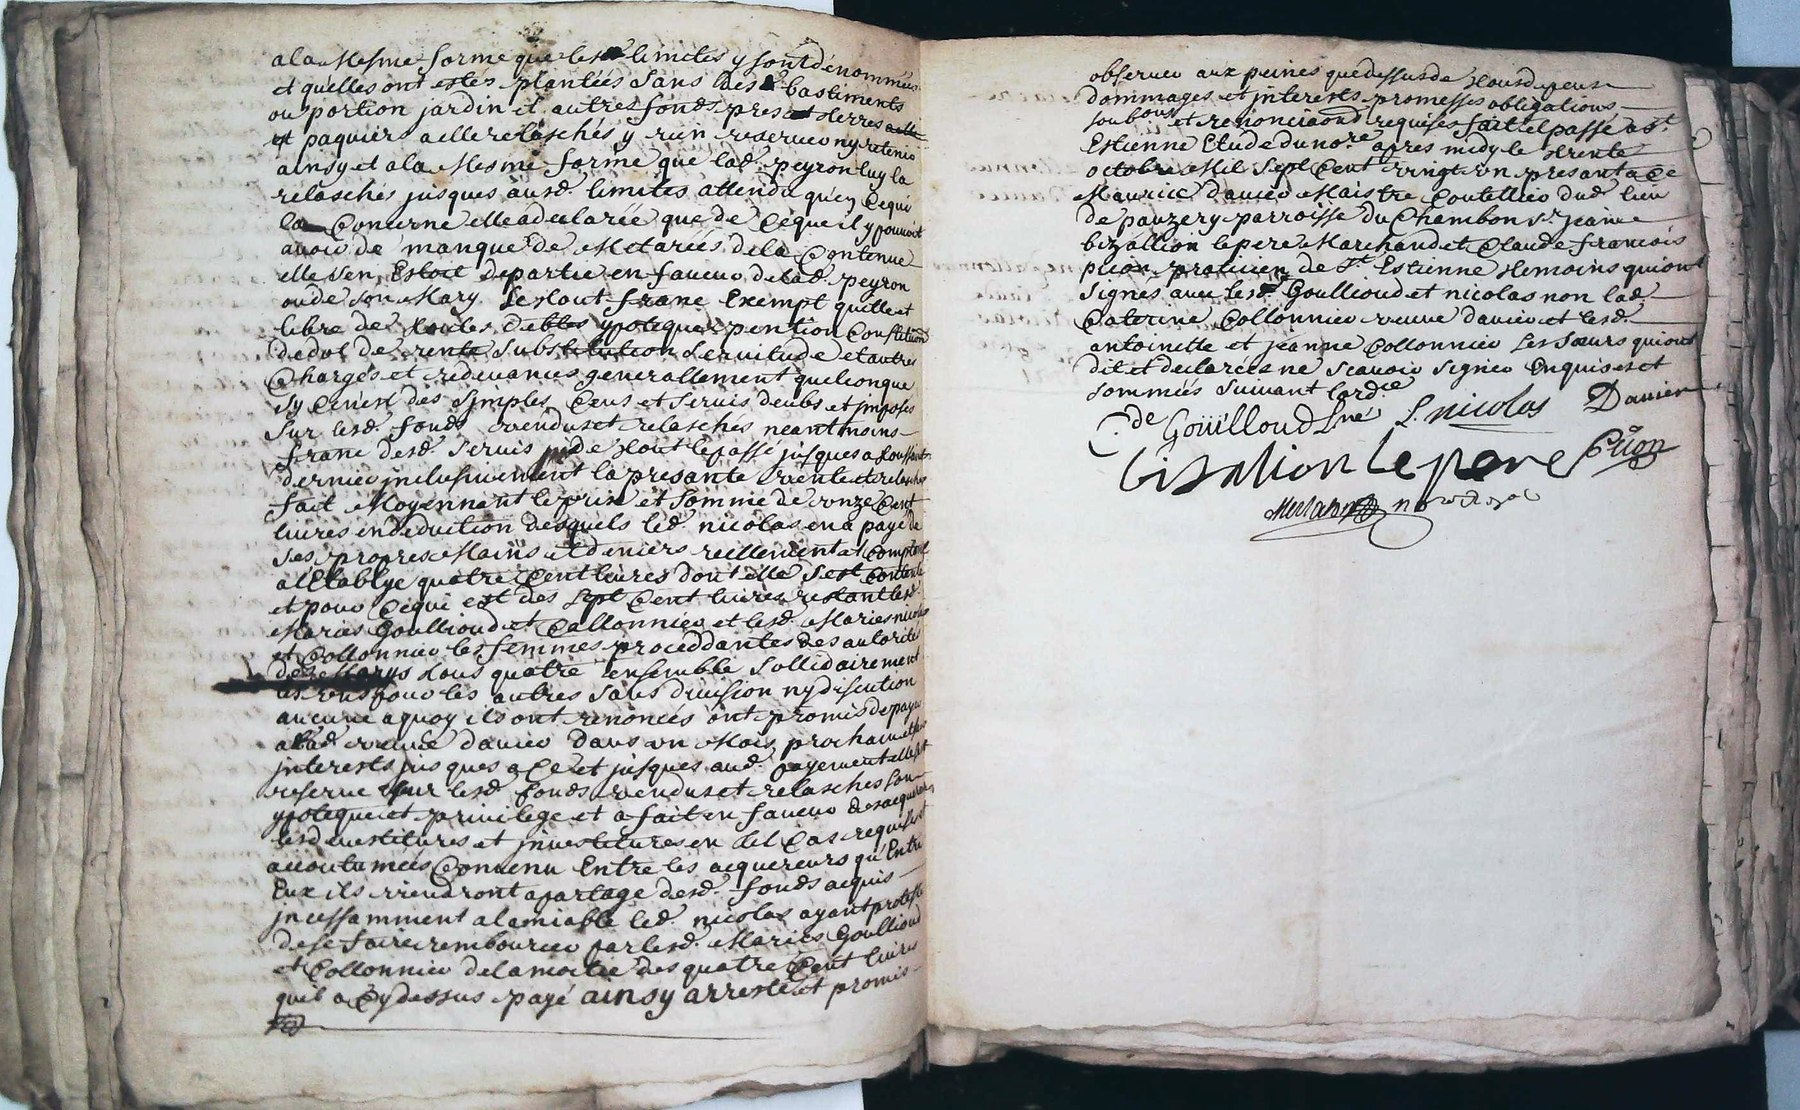 a la mesme forme que les limites y sont dénommés
et quelles ont estés plantéés dans les bastiments
ou portion jardin et autres fonds pres et terres
et paquiers a elle relaschés y rien reserver ny retenir
ainsy et a la mesme forme que lad. peyron luy la
relaschés jusques ausd. limites attendu qu'en cequi
la concerne elle a declarée que de ceque il y pouvoit
avoir de manque de metariés de la contenue
elle s'en est departie en faveur de lad. peyron
ou de son mary le tout franc exempt quitte et
libre de toutes debtes ypoteques pention constitution
de dot de rente substitution servitude et autres
charges et redevances generallement quelconque
sy ce n'est des simples cens et servis deubs et imposés
sur lesd. fonds vendus et relaschés neantmoins
franc desd. servis de tout le passé jusques a toussaint
dernier inclusivement la presante vente et relaschés
fait moyennent le prix et somme de onze cent
livres en deduction desquels led. nicolas en a payé de
ses propres mains et deniers reellement et comptant
a l'etablye quatre cent livres dont elle s'est contente
et pour cequi est des sept cent livres restant lesd.
mariés Goullioud et Collonnier et lesd. mariés nicolas
et Collonnier les femmes proceddantes des autorités
des marys tous quatre ensemble sollidairement
les uns pour les autres sans division ny discution
aucune a quoy ils ont renoncés ont promis de payer
a lad. veuve danier dans un mois prochain
interests jusques a ce et jusques aud. payement elle
reserve sur lesd. fonds vendus et relaschés son
ypoteque et privilege et a fait en faveur des acquereurs
les devestitures et investitures en tel cas requises et
accoutumées convenu entre les acquereurs qu'entre
eux ils viendront a partage desd. fonds acquis
incessamment a l'amiable led. nicolas ayant protesté
de se faire rembourcer par lesd. mariés Goullioud
et Collonnier de la moitié des quatre cent livres
quil a cy dessus payé ainsy arresté et promis
observer aux peines que dessus de tous depens
dommages et interests promesses obligations
soubons et renonciaons requises fait et passé a st.
Estienne Etude du nore. apres midy le trente
octobre mil sept cent vingt un presant a ce
Maurice danier maistre coutellier dud. lieu
de pauzery parroisse du Chambon sr. jeanne
bizallion le pere marchand et Claude francois
prion praticien de st. Estienne temoins qui ont
signés avec lesd. Goullioud et nicolas non lad.
Caterine Collonnier veuve danier et lesd.
antoinette et jeanne Collonnier les sœurs qui ont
dit et declarées ne scavoir signer enquises et
sommées suivant l'ordce.
Goüilloud L. nicolas Danier
bisalion le pere Prion